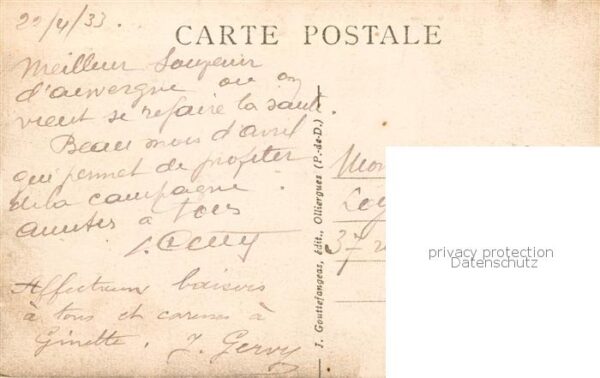 22/4/33.
CARTE POSTALE
Meilleur Souvenir
d'auvergne ou on
vient se refaire la santé.
Beau mois d'avril
qui permet de profiter
de la campagne.
amitiés à tous
Affectueux baisers
à tous et caresses à
Ginette. J. Gervy
J. Gouttefangeas, édit., Olliergues (P.-de-D.)
37
privacy protection
Datenschutz